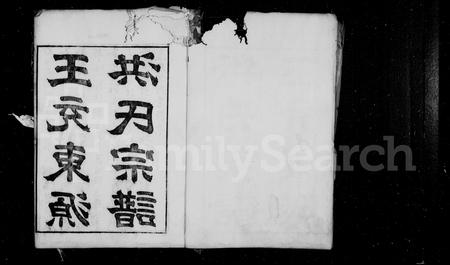 洪氏宗譜
王東源
FamilySearch